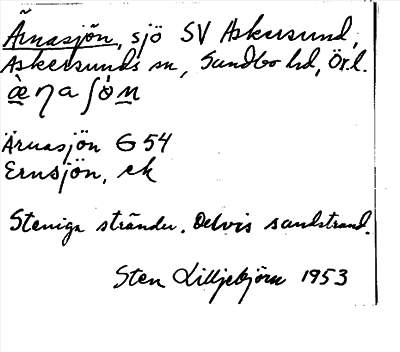 Ärnasjön, sjö SV Askersund,
Askersunds sn, Sundbo hd, Ör.l.
Ärnasjön G 54
Ernsjön, ek
Steniga stränder. Delvis sandstrand.
Sten Lilljebjörn 1953